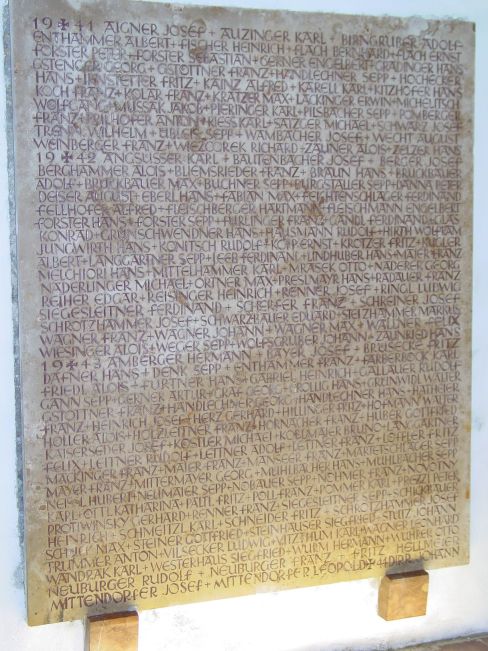 19✠41 AIGNER JOSEF + AUZINGER KARL + BIRNGRUBER ADOLF
ENTHAMMER ALBERT + FISCHER HEINRICH + FLACH BERNHARD + FLACH ERNST
FORSTER PETER + FORSTER SEBASTIAN + GERNER ENGELBERT + GRADINGER HANS
GEORG + GSTOTTNER FRANZ + HANDLECHNER SEPP + HOCHER
HANS + FRITZ + KAINZ ALFRED + KARELL KARL + KITZHOFER HANS
KOCH FRANZ + KOLAR FRANZ + KRATZER MAX + LACKINGER ERWIN + MICHELITSCH
WOLFGANG + MUSSAK JAKOB + PIERINGER KARL + PILSBACHER SEPP + POMBERGER
FRANZ + ANTON + RIESS KARL + SALZGER MICHAEL + SCHWARZ JOSEF
WILHELM + SEPP + WAMBACHER JOSEF + AUGUST
WEINBERGER FRANZ + RICHARD + ZAUNER ALOIS + ZELZER HANS
19✠42 ANGSÜSSER KARL + BAUTENBACHER JOSEF + BERGER JOSEF
BERGHAMMER ALOIS + BLIEMSRIEDER FRANZ + BRAUN HANS + BRUCKBAUER
ADOLF + BRUCKBAUER MAX + BUCHNER SEPP + BURGSTALLER SEPP + DANNA PETER
DEISER AUGUST + EBERL HANS + FABIAN MAX + FEICHTENSCHLAGER FERDINAND
FELLHOFER ALFRED + FLEISCHBERGER HARTMANN + FLEISCHMANN ENGELBERT
FORSTER HANS + FORSTER SEPP + FRANZ + GANDL FERDINAND +
KONRAD + GRÜNSCHWENDNER HANS + HAUSMANN RUDOLF + HIRTH WOLFGANG
JUNGWIRTH HANS + KONITSCH RUDOLF + KOPP ERNST + KROTZER FRITZ +
ALBERT + LANGGARTNER SEPP + LEEB FERDINAND + HANS + MAIER FRANZ
MELCHIORI HANS + MITTELHAMMER KARL + MRASEK OTTO + NADERER GEORG
NADERLINGER MICHAEL + ORTNER MAX + PRESLMAYR HANS + RADAUER FRANZ
REIHER EDGAR + REISINGER HEINRICH + RENNER JOSEF + RINGL LUDWIG
SIEGESLEITNER FERDINAND + SCHARFER FRANZ + SCHREINER JOSEF
SCHROTZHAMMER JOSEF + SCHWARZBAUER EDUARD + STELZHAMMER MARKUS
WAGNER FRANZ + WAGNER JOHANN + WAGNER MAX + WALLNER
WIESINGER ALOIS + WEGER SEPP + WOLFSGRUBER JOHANN + ZAUNRIED HANS
19✠43 AMBERGER HERMANN + BAYER JOSEF + FRITZ
DAFNER HANS + DENK SEPP + ENTHAMMER FRANZ + FÄRBERBÖCK KARL
FRIEDL ALOIS + FÜRTNER HANS + GABRIEL HEINRICH + GALLAUER RUDOLF
GANN SEPP + GERNER ARTUR + GRAF GEORG + HANS + GRUNWIDL WALTER
GSTOTTNER FRANZ + HANDLECHNER HANS + HATHEIER
HEINRICH + JOSEF + HERZ GERHARD + HILLINGER FRITZ + HOFMANN WALTER
HÖLLER ALOIS + HOLZLEITNER FRANZ + HORNACHER FRANZ + HUBER GOTTFRIED
KAISERSEDER JOSEF + KÖSTLER MICHAEL + KOBLMAIER BRUNO + LANGGARTNER
FELIX + LEITNER RUDOLF + LEITNER ADOLF + FRANZ + LÖFFLER FRITZ
MACKINGER FRANZ + MAIER FRANZ + MANGER FRANZ + MARTETSCHLÄGER SEPP
MAYER FRANZ + MITTERMAYER GEORG + MÜHLBACHER HANS + MÜHLBACHER SEPP
HUBERT + NEUMAIER SEPP + NOBAUER SEPP + NÖHMER FRANZ + NOPP
KARL + OTTL KATHARINA + PATIL FRITZ + POLL FRANZ + KARL + PREZL PETER
PROTIWINSKY GERHARD + RINNER FRANZ + SIEGESLEITNER SEPP + SCHICKBAUER
HEINRICH + SCHMEITZL KARL + SCHNEIDER FRITZ + SCHROTZHAMMER JOSEF
MAX + STEINER GOTTFRIED + STEINHAUSER SIEGFRIED + JOHANN
TRUMMER ANTON + VILSECKER LUDWIG + WITZTHUM KARL + WAGNER LEONHARD
WANDRAK KARL + WESTERHAUS SIEGFRIED + WURM HERMANN + WÜHRER OTTO
NEUBURGER RUDOLF + NEUBURGER FRANZ + FRITZ HELLMEIER
MITTENDORFER JOSEF + MITTENDORFER LEOPOLD + DIRR JOHANN